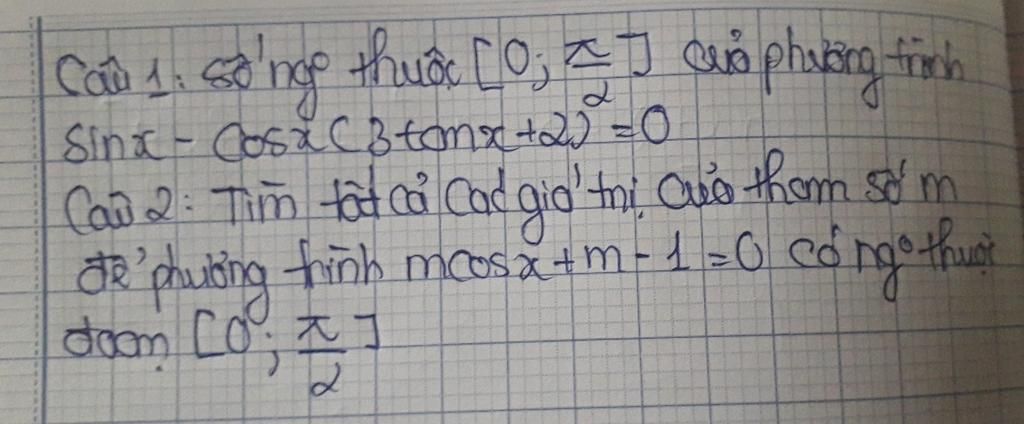 Câu 1: số ngo thuộc [0; π/2] của phương trình
sinx - cosx(3tanx+2)=0
Câu 2: Tìm tất cả các giá trị của tham số m
để phương trình mcosx+m-1=0 có ngo thuộc
đoạn [0; π/2]